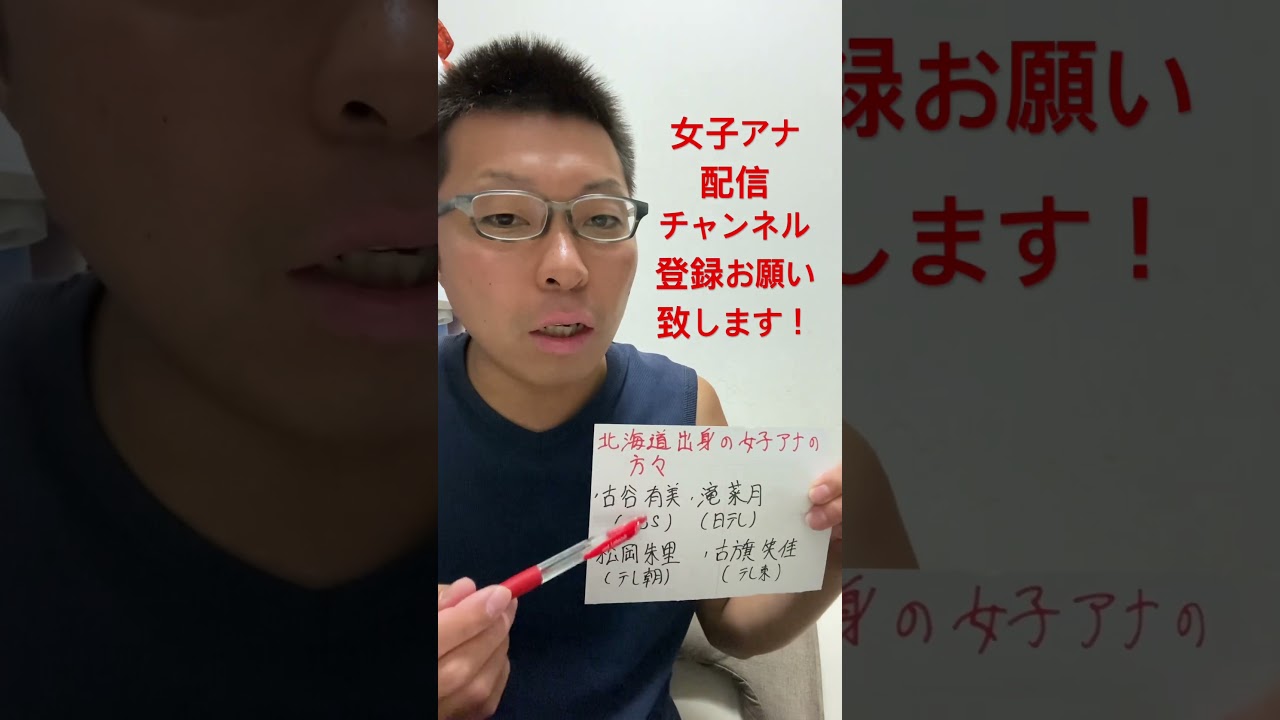 女子アナ
配信
チャンネル
登録お願い
致します！
北海道出身の女子アナの
方々
・古谷有美
・滝菜月
(日テレ)
松岡朱里
・古旗笑佳
(テレ朝)
(テレ東)
録お願い
します！
身の女子アナの